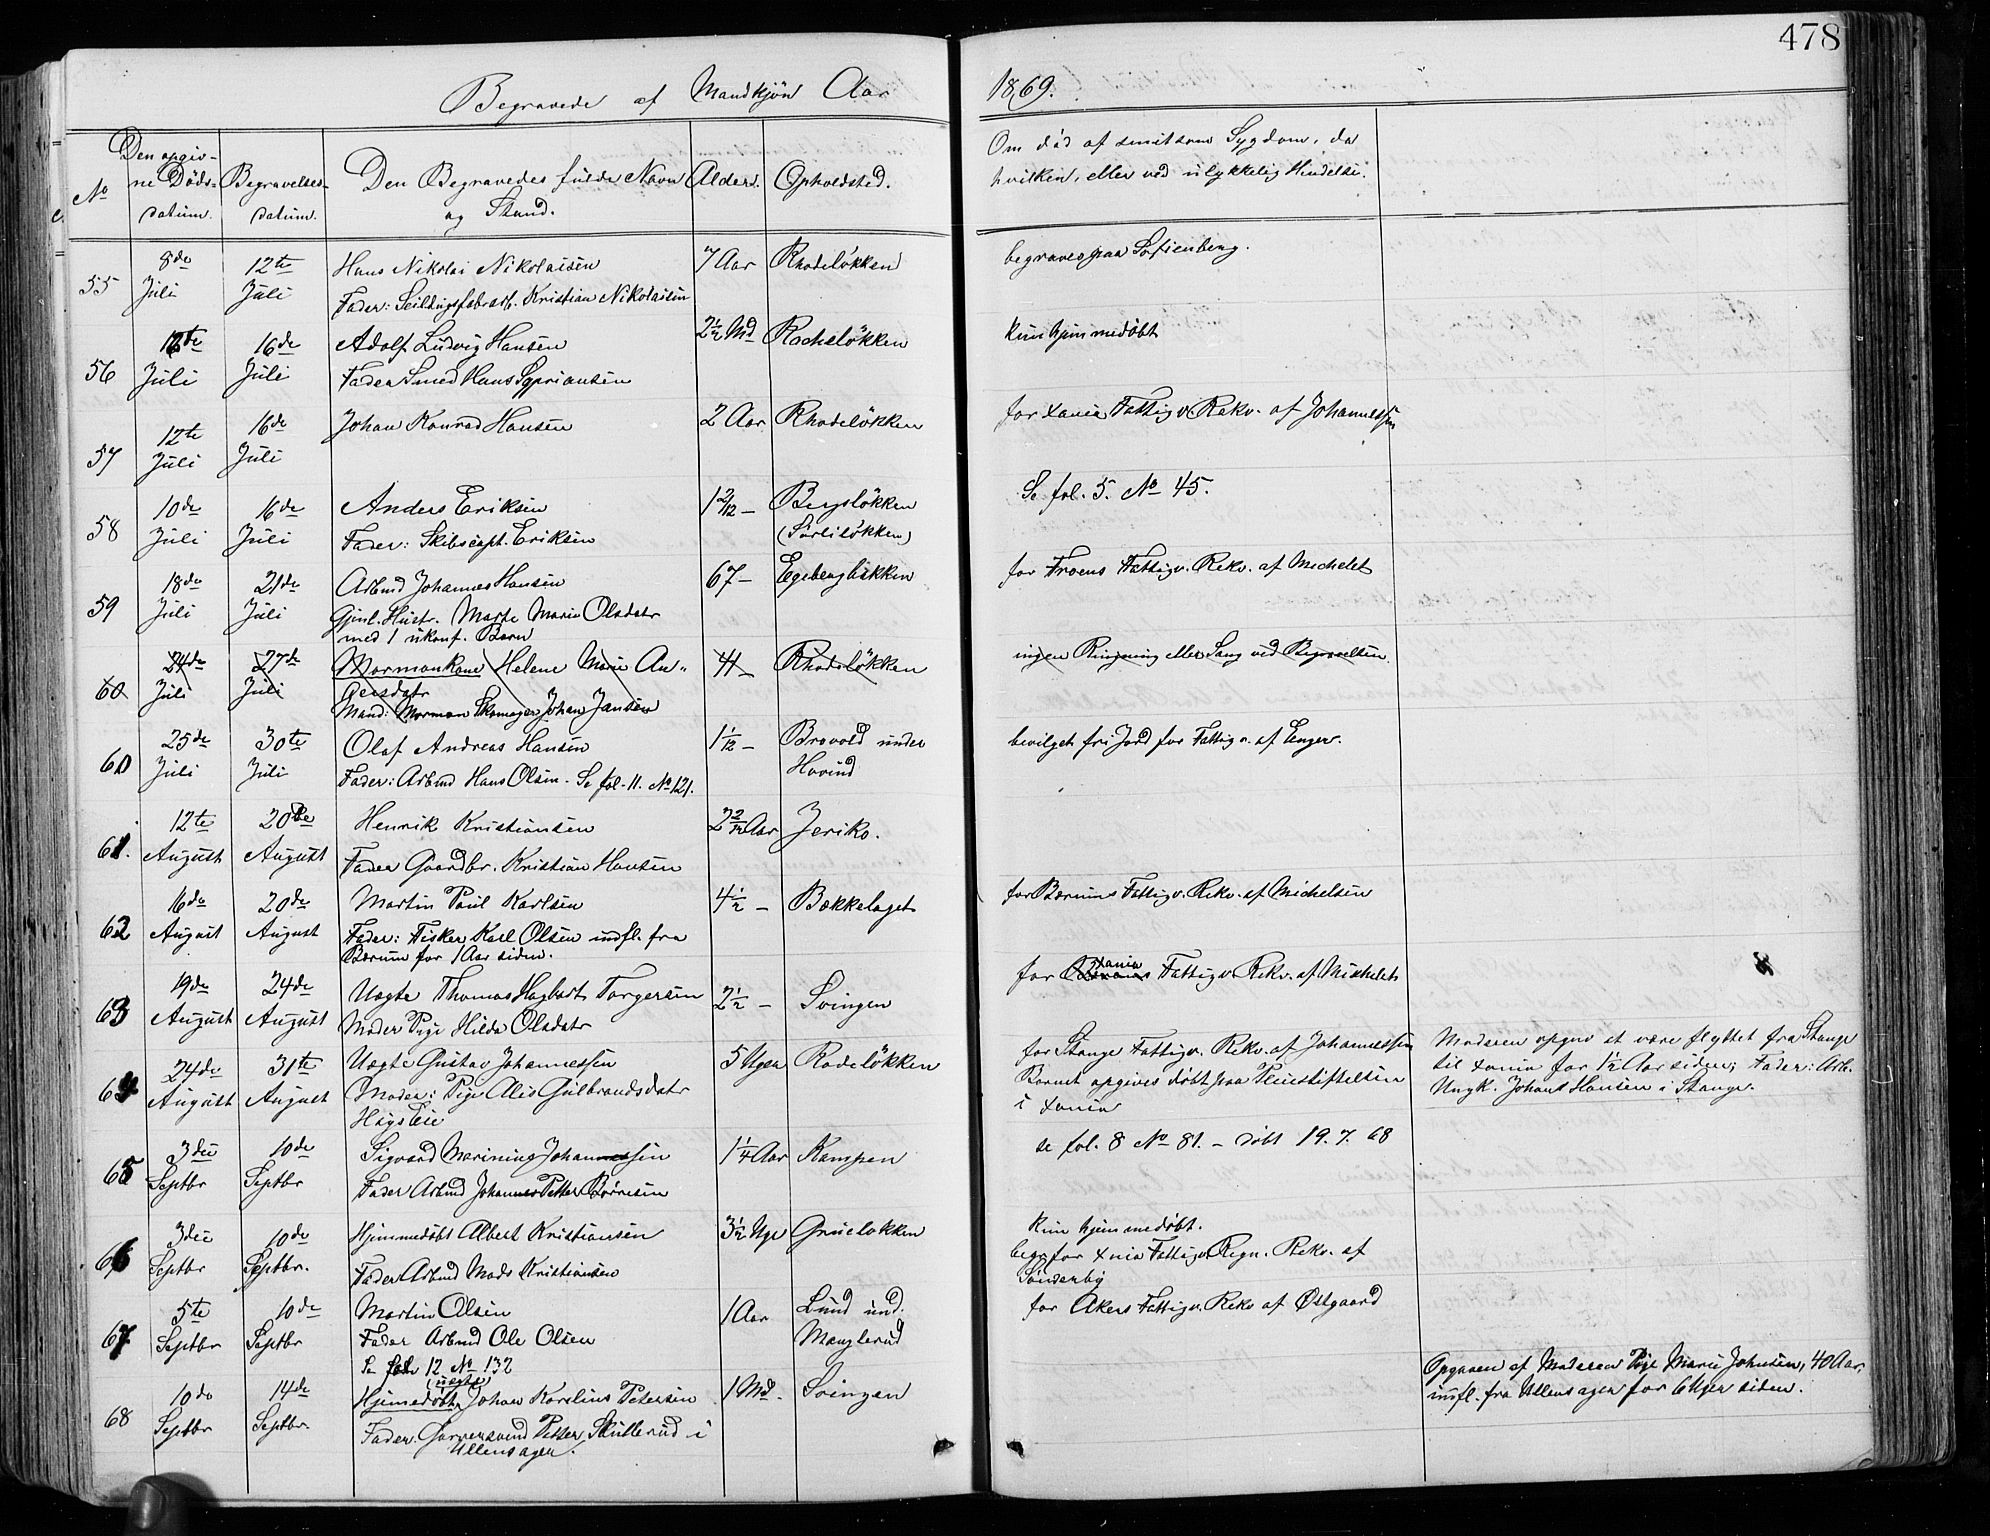 478
Begravede af Mandkjön Aar 1869.
No
Den opgiv-
ne Döds-
datum.
Begravelses-
datum.
Den Begravedes fulde Navn
og Stand.
Alder.
Opholdsted.
Om död af smitsom Sygdom, da
hvilken, eller ved ulykkelig Hendelse.
55
8de
Juli
12te
Juli
Hans Nikolai Nikolaisen
Fader: Seildugsfabrarb. Kristian Nikolaisen
7 Aar
Rhodelökken
begraves paa Sofienberg.
56
12te
Juli
16de
Juli
Adolf Ludvig Hansen
Fader Smed Hans Sypriansen
2½ Md
Rodeløkken
kun hjemmedöbt
57
12te
Juli
16de
Juli
Johan Konrad Hansen
2 Aar
Rhodelökken
for Xania Fattigv. Rekv. af Johannessen
58
10de
Juli
16de
Juli
Anders Eriksen
Fader: Skibscapt. Eriksen
1 2/12 —
Bergslökken
(Sörlilökken)
Se fol. 5. No 45.
59
18de
Juli
21de
Juli
Arbmd Johannes Hansen
Gjenl. Hustr. Marte Marie Olsdatr
med 1 ukonf. Barn
67 —
Egeberglökken
for Froens Fattigv. Rekv. af Michelet
60
24de
Juli
27de
Juli
Mormonkone Helene Marie An-
dersdatr
Mand: Mormon Skomager Johan Jansen
41 —
Rhodelökken
ingen Ringning eller Sang ved Begravelsen.
60
25de
Juli
30te
Juli
Olaf Andreas Hansen
Fader: Arbmd Hans Olsen - Se fol. 11. No 121.
1 1/12 —
Brovold under
Hovind
bevilget fri Jord for Fattigv. af Enger.
61.
12te
August
20de
August
Henrik Kristiansen
Fader Gaardbr. Kristian Hansen
2 2/12 Aar
Jeriko.
62
16de
August
20de
August
Martin Paul Karlsen
Fader: Fisker Karl Olsen indfl. fra
Bærum for 1 Aar siden.
4½ —
Bækkelaget
for Bærums Fattigv. Rekv. af Michelsen
63
19de
August
24de
August
Uægte Thomas Hagbart Torgersen
Moder Pige Hilda Olsdatr
2½ —
Svingen
for Xania Fattigv Rekv. af Michelet
64
24de
August
31te
August
Uægte Gustav Johannessen
Moder: Pige Alis Gulbrandsdatr
Høgs Eie
5 Uger
Rodelökken
for Stange Fattigv. Rekv. af Johannessen
Barnet opgives död paa Pleiestiftelsen
i Xania
Moderen opgav at være flyttet fra Stange
til Xania for 1½ Aar siden; Fader: Arb.
Ungk. Johans Hansen i Stange.
65
3die
Septbr
10de
Septbr
Sigvard Marining Johannessen
Fader Arbmd Johannes Petter Børresen
1¼ Aar
Kampen
se fol. 8 No 81. - födt 19. 7. 68
66
3die
Septbr
10de
Septbr.
Hjemmedöbt Albert Kristiansen
Fader Arbmd Mads Kristiansen
3½ Uge
Gruelokken
kun hjemmedöbt.
begr. for Xnia Fattigv. Regn. Rekv. af
Sönderby
67
5te
Septbr
10de
Septbr
Martin Olsen
Fader Arbmd Ole Olsen
Se fol 12 No 132
1 Aar
Lund und.
Manglerud
for Akers Fattigv. Rekv af Østgaard
68
10de
Septbr
14de
Septbr.
(uægte)
Hjemedöbt Johan Karelius Petersen
Fader. Garversvend Petter Skullerud i
Ullensager.
1 Md.
Svingen
Opgaven af Moderen Pige Marie Johnsen, 40 Aar,
indfl. fra Ullensager for 6 Uger siden.